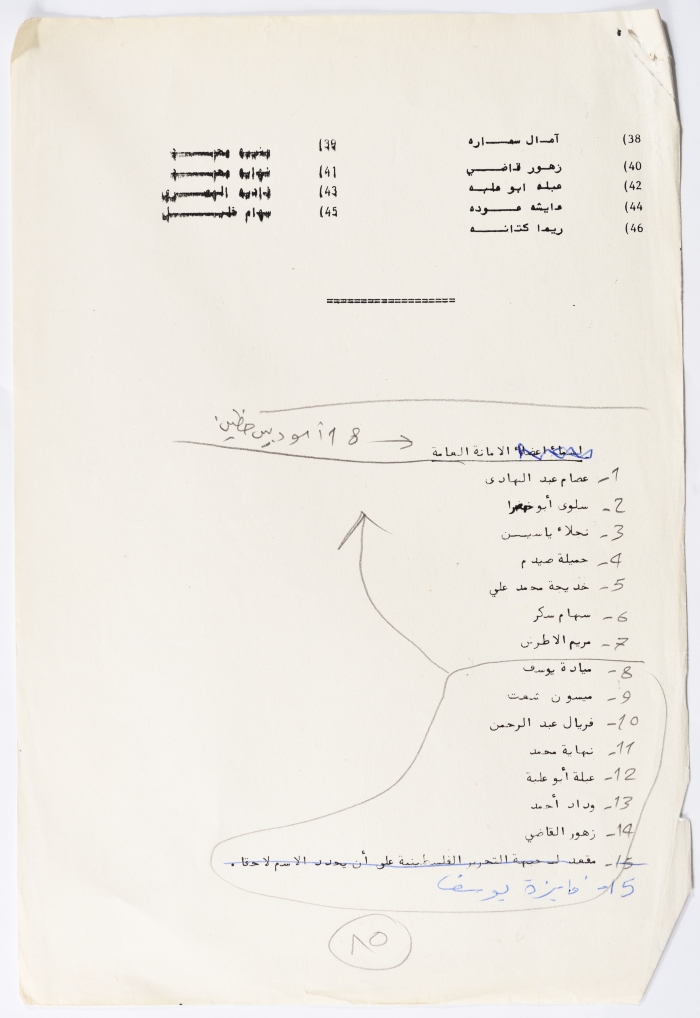 38) آمـال سمـاره 39)
40) زهـور قـاضـــي 41) نهايه محمـــد
42) عبلـه ابو علبـه 43) ناديه المصـــري
44) عايشه عــــوده 45) سهام خليـــل
46) ريما كتانـــه
===================
← 18 أسود بيس
اسماء اعضاء الامانة العامة
1- عصام عبد الهادى
2- سلوى أبو خضرا
3- نجلاء ياسيـــن
4- جميلة صيدم
5- خديجة محمد علي
6- سهام سكر
7- مريم الاطرش
8- ميادة يوسف
9- ميسون شعث
10- فريال عبد الرحمن
11- نهاية محمد
12- عبلة أبو علبة
13- وداد أحمد
14- زهور القاضي
15- مقعد لـ جبهة التحرير الفلسطينية على أن يحدد الاسم لاحقا .
15- فايزة يوسف
٨٥